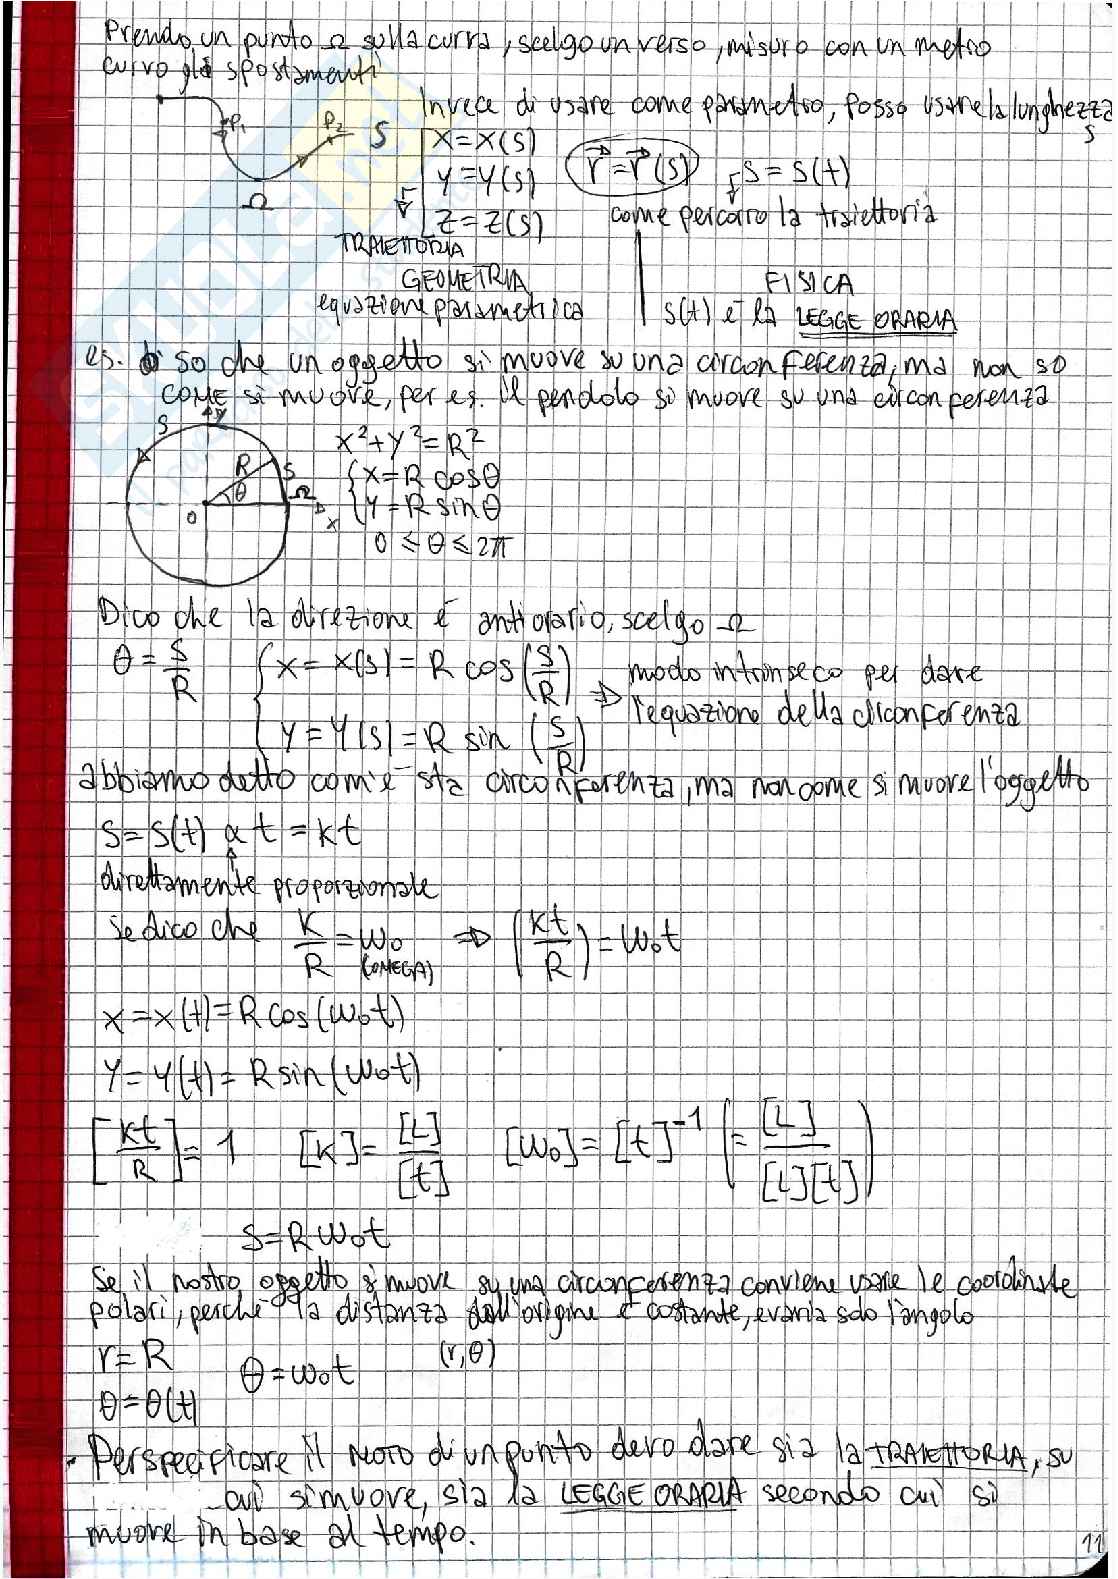 Prendo un punto Ω sulla curva, scelgo un verso, misuro con un metro
curvo gli spostamenti
Invece di usare come parametro, posso usare la lunghezza
s
P1 P2 S
Ω
x=x(s)
y=y(s)
z=z(s)
r⃗=r⃗(s)
s=s(t)
come percorro la traiettoria
TRAIETTORIA
GEOMETRIA
equazione parametrica
FISICA
s(t) è la LEGGE ORARIA
es. so che un oggetto si muove su una circonferenza, ma non so
COME si muove, per es. il pendolo si muove su una circonferenza
S y
R S
θ Ω
O x
x²+y²=R²
x=R cosθ
y=R sinθ
0 ≤ θ ≤ 2π
Dico che la direzione è antiorario, scelgo Ω
θ = s/R
x = x(s) = R cos(s/R)
y = y(s) = R sin (s/R)
⇒ modo intrinseco per dare
l'equazione della circonferenza
abbiamo detto com'è sta circonferenza, ma non come si muove l'oggetto
s=s(t) α t = kt
direttamente proporzionale
se dico che k/R = ω₀ ⇒ (kt/R) = ω₀t
(OMEGA)
x = x(t) = R cos(ω₀t)
y = y(t) = R sin(ω₀t)
[kt/R] = 1 [k] = [L]/[t] [ω₀] = [t]⁻¹ (= [L]/[L][t])
s=R ω₀t
Se il nostro oggetto si muove su una circonferenza conviene usare le coordinate
polari, perché la distanza dall'origine è costante, e varia solo l'angolo
r=R θ=ω₀t (r,θ)
θ=θ(t)
• Per specificare il moto di un punto devo dare sia la TRAIETTORIA, su
cui si muove, sia la LEGGE ORARIA secondo cui si
muove in base al tempo.
11